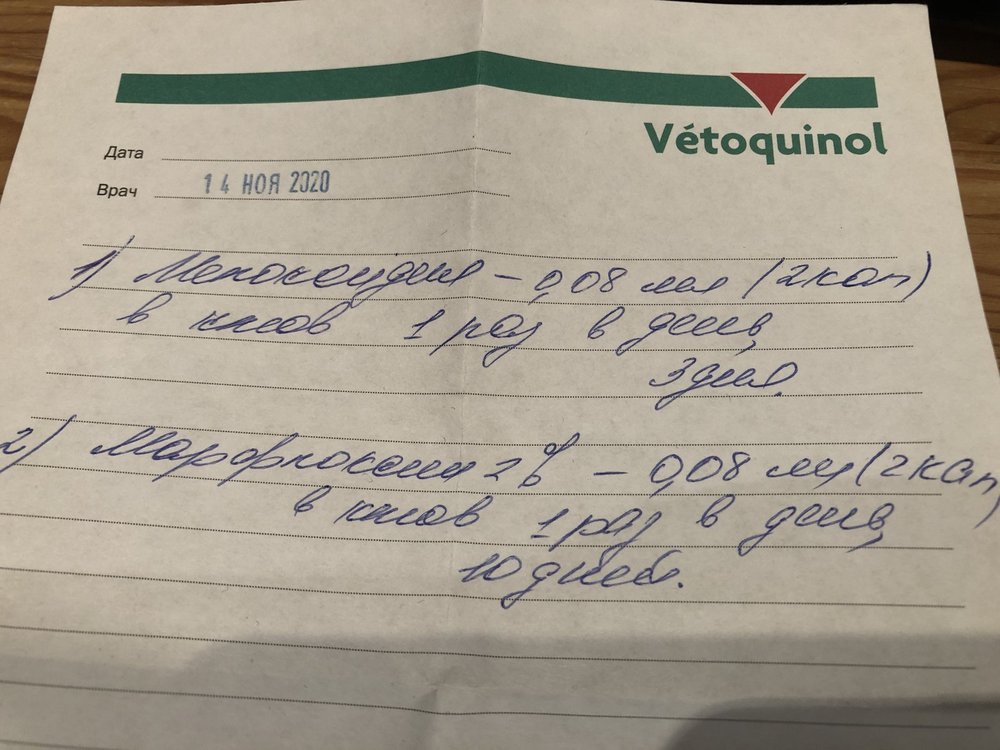 Vétoquinol
Дата
Врач 14 НОЯ 2020
1) Мелоксидил – 0,08 мл (2 кап)
в клюв 1 раз в день,
3 дня.
2) Марфлоксин 2% – 0,08 мл (2 кап)
в клюв 1 раз в день,
10 дней.